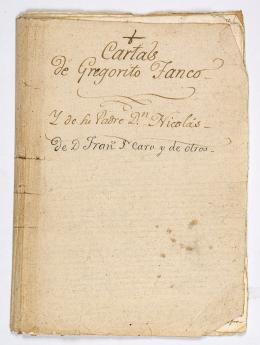 Cartas
de Gregorito Fanco
Y de su Padre Dn. Nicolás
De D. Fran.co Caro y de otros